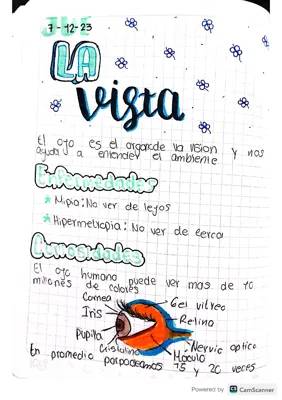 JUE
7-12-23
LA
vista
El ojo es el organode la vision y nos
ayuda a entender el ambiente
Enfermedades
* Mipa: No ver de lejos
* Hipermetropia: No ver de cerca
Curiosidades
El ojo humano puede ver mas de 10
millones de colores
Cornea
Iris
Pupila
Cristalino
Gel vitreo
Retina
Nervio optico
Macula
En promedio parpadeamos 15 y 20 veces
Powered by CS CamScanner